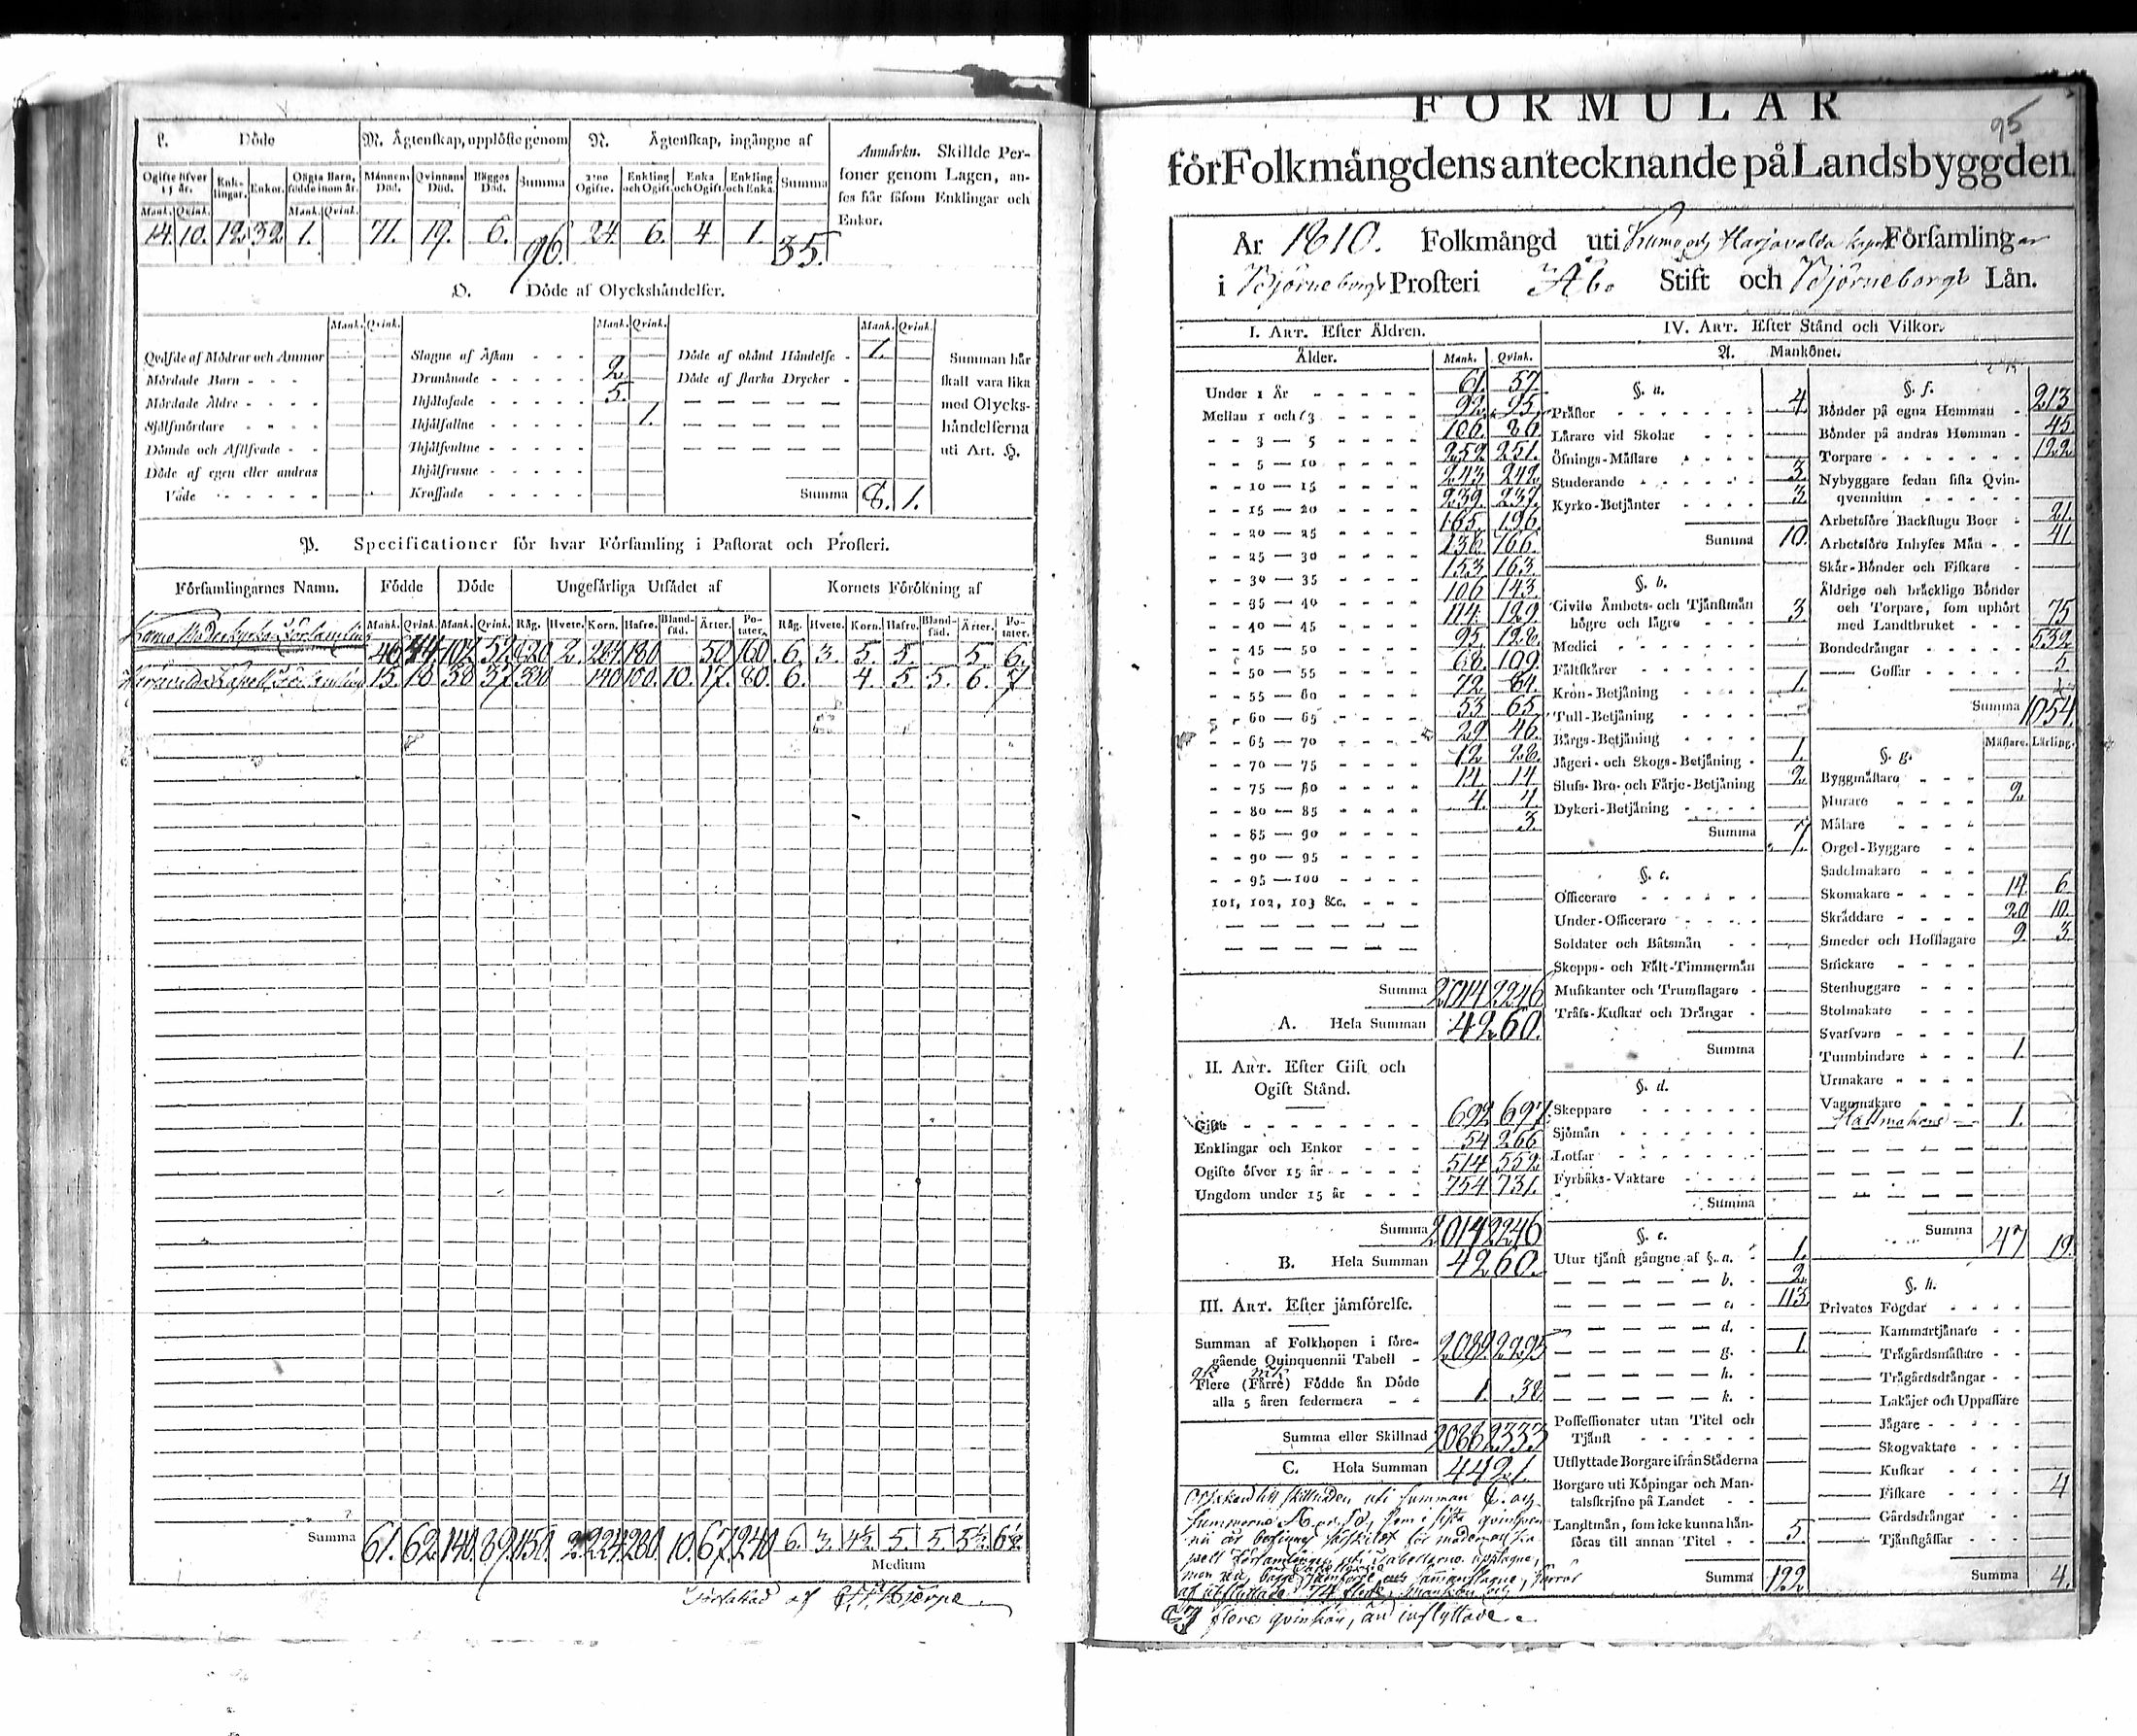 L. Döde
M. Ägtenskap, upplöste genom
N. Ägtenskap, ingångne af
Anmärkn. Skillde Personer genom Lagen, anses här såsom Enklingar och Enkor.
Ogifte öfver 15 år. Enklingar. Enkor. Oägta Barn, födde inom år.
Männens Död. Qvinnans Död. Bägges Död. Summa
2:ne Ogifte. Enkling och Ogift. Enka och Ogift. Enkling och Enka. Summa
Mank. Qvink. Mank. Qvink.
14. 10. 12. 32. 1. 71. 19. 6. 96. 24. 6. 4 1. 35.
O. Döde af Olyckshändelser.
Mank. Qvink. Mank. Qvink. Mank. Qvink.
Qväfde af Mödrar och Ammor
Mördade Barn
Mördade Äldre
Sjelfmördare
Dömde och Aflifvade
Döde af egen eller andras Våde
Slagne af Åskan
Drunknade 2.
Ihjälosade 5.
Ihjälfallne 1.
Ihjälsvultne
Ihjälfrusne
Krossade
Döde af okänd Händelse 1.
Döde af starka Drycker
Summa 8. 1.
Summan här skall vara lika med Olyckshändelserna uti Art. H.
P. Specificationer för hvar Församling i Pastorat och Prosteri.
Församlingarnes Namn. Födde Döde Ungefärliga Utsädet af Kornets Förökning af
Mank. Qvink. Mank. Qvink. Råg. Hvete. Korn. Hafre. Blandsäd. Ärter. Potater. Råg. Hvete. Korn. Hafre. Blandsäd. Ärter. Potater.
Kumo Moderkyrko Församling 46 44 102 52 820 2. 284 180 50 160 6. 3. 5. 5. 5 6.
Kapell Församling 15. 18 38 37 330 140 100. 10. 17. 80. 6. 4. 5. 5. 6. 7
Summa 61. 62. 140. 89. 1150. 2. 424. 280. 10. 67. 240 6. 3. 4½ 5. 5 5½ 6½
Medium
af
FORMULÄR
95
för Folkmängdens antecknande på Landsbyggden.
År 1810. Folkmängd uti Kumo och Harjavalda kapell Församlingar
i Björneborgs Prosteri Åbo Stift och Björneborgs Län.
I. Art. Efter Åldren.
Ålder. Mank. Qvink.
Under 1 År 61. 57.
Mellan 1 och 3 92. 95.
3 — 5 106. 86.
5 — 10 252 251.
10 — 15 243 242.
15 — 20 239. 237.
20 — 25 165. 196.
25 — 30 138. 166.
30 — 35 153. 163.
35 — 40 106 143.
40 — 45 114. 129.
45 — 50 95. 128.
50 — 55 68. 109.
55 — 60 72 84.
60 — 65 53 65.
65 — 70 29 46.
70 — 75 12 28.
75 — 80 14. 14.
80 — 85 4. 4.
85 — 90 3.
90 — 95
95 — 100
101, 102, 103 &c.
Summa 2014 2246
A. Hela Summan 4260.
II. Art. Efter Gift och Ogift Stånd.
Gifte 692 697.
Enklingar och Enkor 54 266
Ogifte öfver 15 år 514 552.
Ungdom under 15 år 754 731.
Summa 2014 2246
B. Hela Summan 4260.
III. Art. Efter jämförelse.
Summan af Folkhopen i föregående Quinquennii Tabell 2089. 2295
Flere (Färre) Födde än Döde alla 5 åren sedermera 1. 38
Summa eller Skillnad 2088 2333
C. Hela Summan 4421.
skillnaden uti summan C. och
flere qvinkön, än inflyttade.
IV. Art. Efter Stånd och Vilkor.
A. Mankönet.
§. a.
Präster 4.
Lärare vid Skolar
Öfnings-Mästare
Studerande 3.
Kyrko-Betjänter 3.
Summa 10.
§. b.
Civile Ämbets- och Tjänstmän högre och lägre 3.
Medici
Fältskärer
Kron-Betjäning 1.
Tull-Betjäning
Bärgs-Betjäning
Jägeri- och Skogs-Betjäning 1.
Sluss- Bro- och Färje-Betjäning 2
Dykeri-Betjäning
Summa 7.
§. c.
Officerare
Under-Officerare
Soldater och Båtsmän
Skepps- och Fält-Timmermän
Musikanter och Trumslagare
Träss-Kuskar och Drängar
Summa
§. d.
Skeppare
Sjömän
Lotsar
Fyrbåks-Vaktare
Summa
§. e.
Utur tjänst gångne af §. a. 1.
b. 2.
c. 113
d.
g. 1.
h.
k.
Possessionater utan Titel och Tjänst
Utflyttade Borgare ifrån Städerna
Borgare uti Köpingar och Mantalsskrifne på Landet
Landtmän, som icke kunna hänföras till annan Titel 5.
Summa 122
§. f.
Bönder på egna Hemman 213
Bönder på andras Hemman 45
Torpare 122
Nybyggare sedan sista Qvinqvennium
Arbetsföre Backstugu Boer 21.
Arbetsföre Inhyses Män 41
Skär-Bönder och Fiskare
Äldrige och bräcklige Bönder och Torpare, som uphört med Landtbruket 75
Bondedrängar 532
Gossar 5
Summa 1054.
§. g. Mästare. Lärling.
Byggmästare
Murare 2.
Målare
Orgel-Byggare
Sadelmakare
Skomakare 14. 6
Skräddare 20 10.
Smeder och Hofslagare 9. 3.
Snickare
Stenhuggare
Stolmakare
Svarfvare
Tunnbindare 1.
Urmakare
Vagnmakare
Hattmakare 1.
Summa 47 19.
§. h.
Privates Fogdar
Kammartjänare
Trägårdsmästare
Trägårdsdrängar
Lakäjer och Uppassare
Jägare
Skogvaktare
Kuskar
Fiskare 4
Gårdsdrängar
Tjänstgåssar
Summa 4.